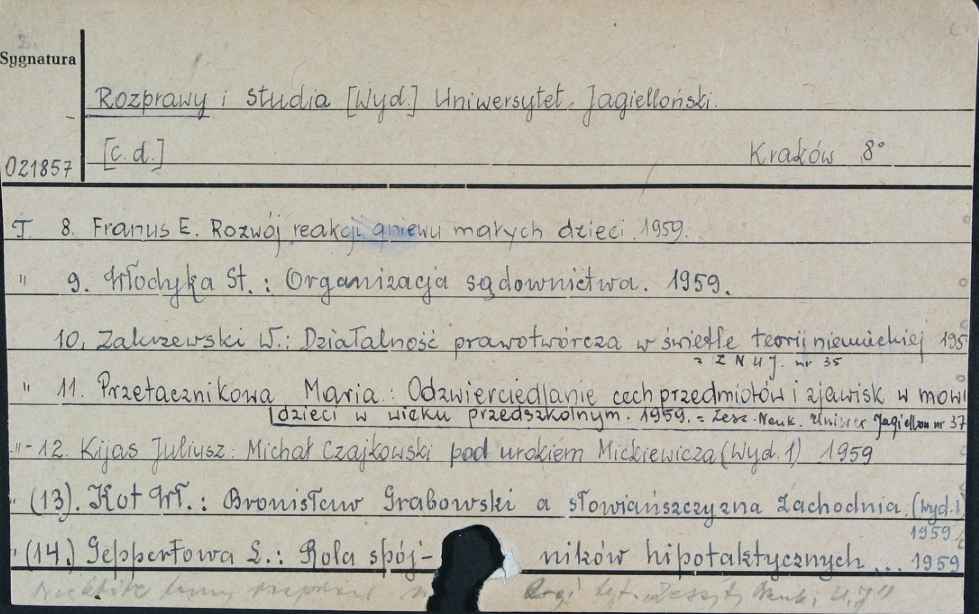 Sygnatura
Rozprawy i studia [Wyd.] Uniwersytet Jagielloński.
021857 [c. d.] Kraków 8°
T. 8. Franus E. Rozwój reakcji gniewu małych dzieci. 1959.
" 9. Włodyka St.: Organizacja sądownictwa. 1959.
10. Zakrzewski W.: Działalność prawotwórcza w świetle teorii niemieckiej 195
= Z N U J. nr 35
" 11. Przetacznikowa Maria: Odzwierciedlanie cech przedmiotów i zjawisk w mowi
dzieci w wieku przedszkolnym. 1959. = Zesz. Nauk. Uniwer. Jagiellon nr 37
"- 12. Kijas Juliusz: Michał Czajkowski pod urokiem Mickiewicza (Wyd. 1) 1959
" (13). Kot Wł.: Bronisław Grabowski a słowiańszczyzna zachodnia. (Wyd. 1
1959
" (14.) Geppertowa L.: Rola spój- ników hipotaktycznych ... 1959
Niektóre tomy Zeszyty Nauk. U.J"